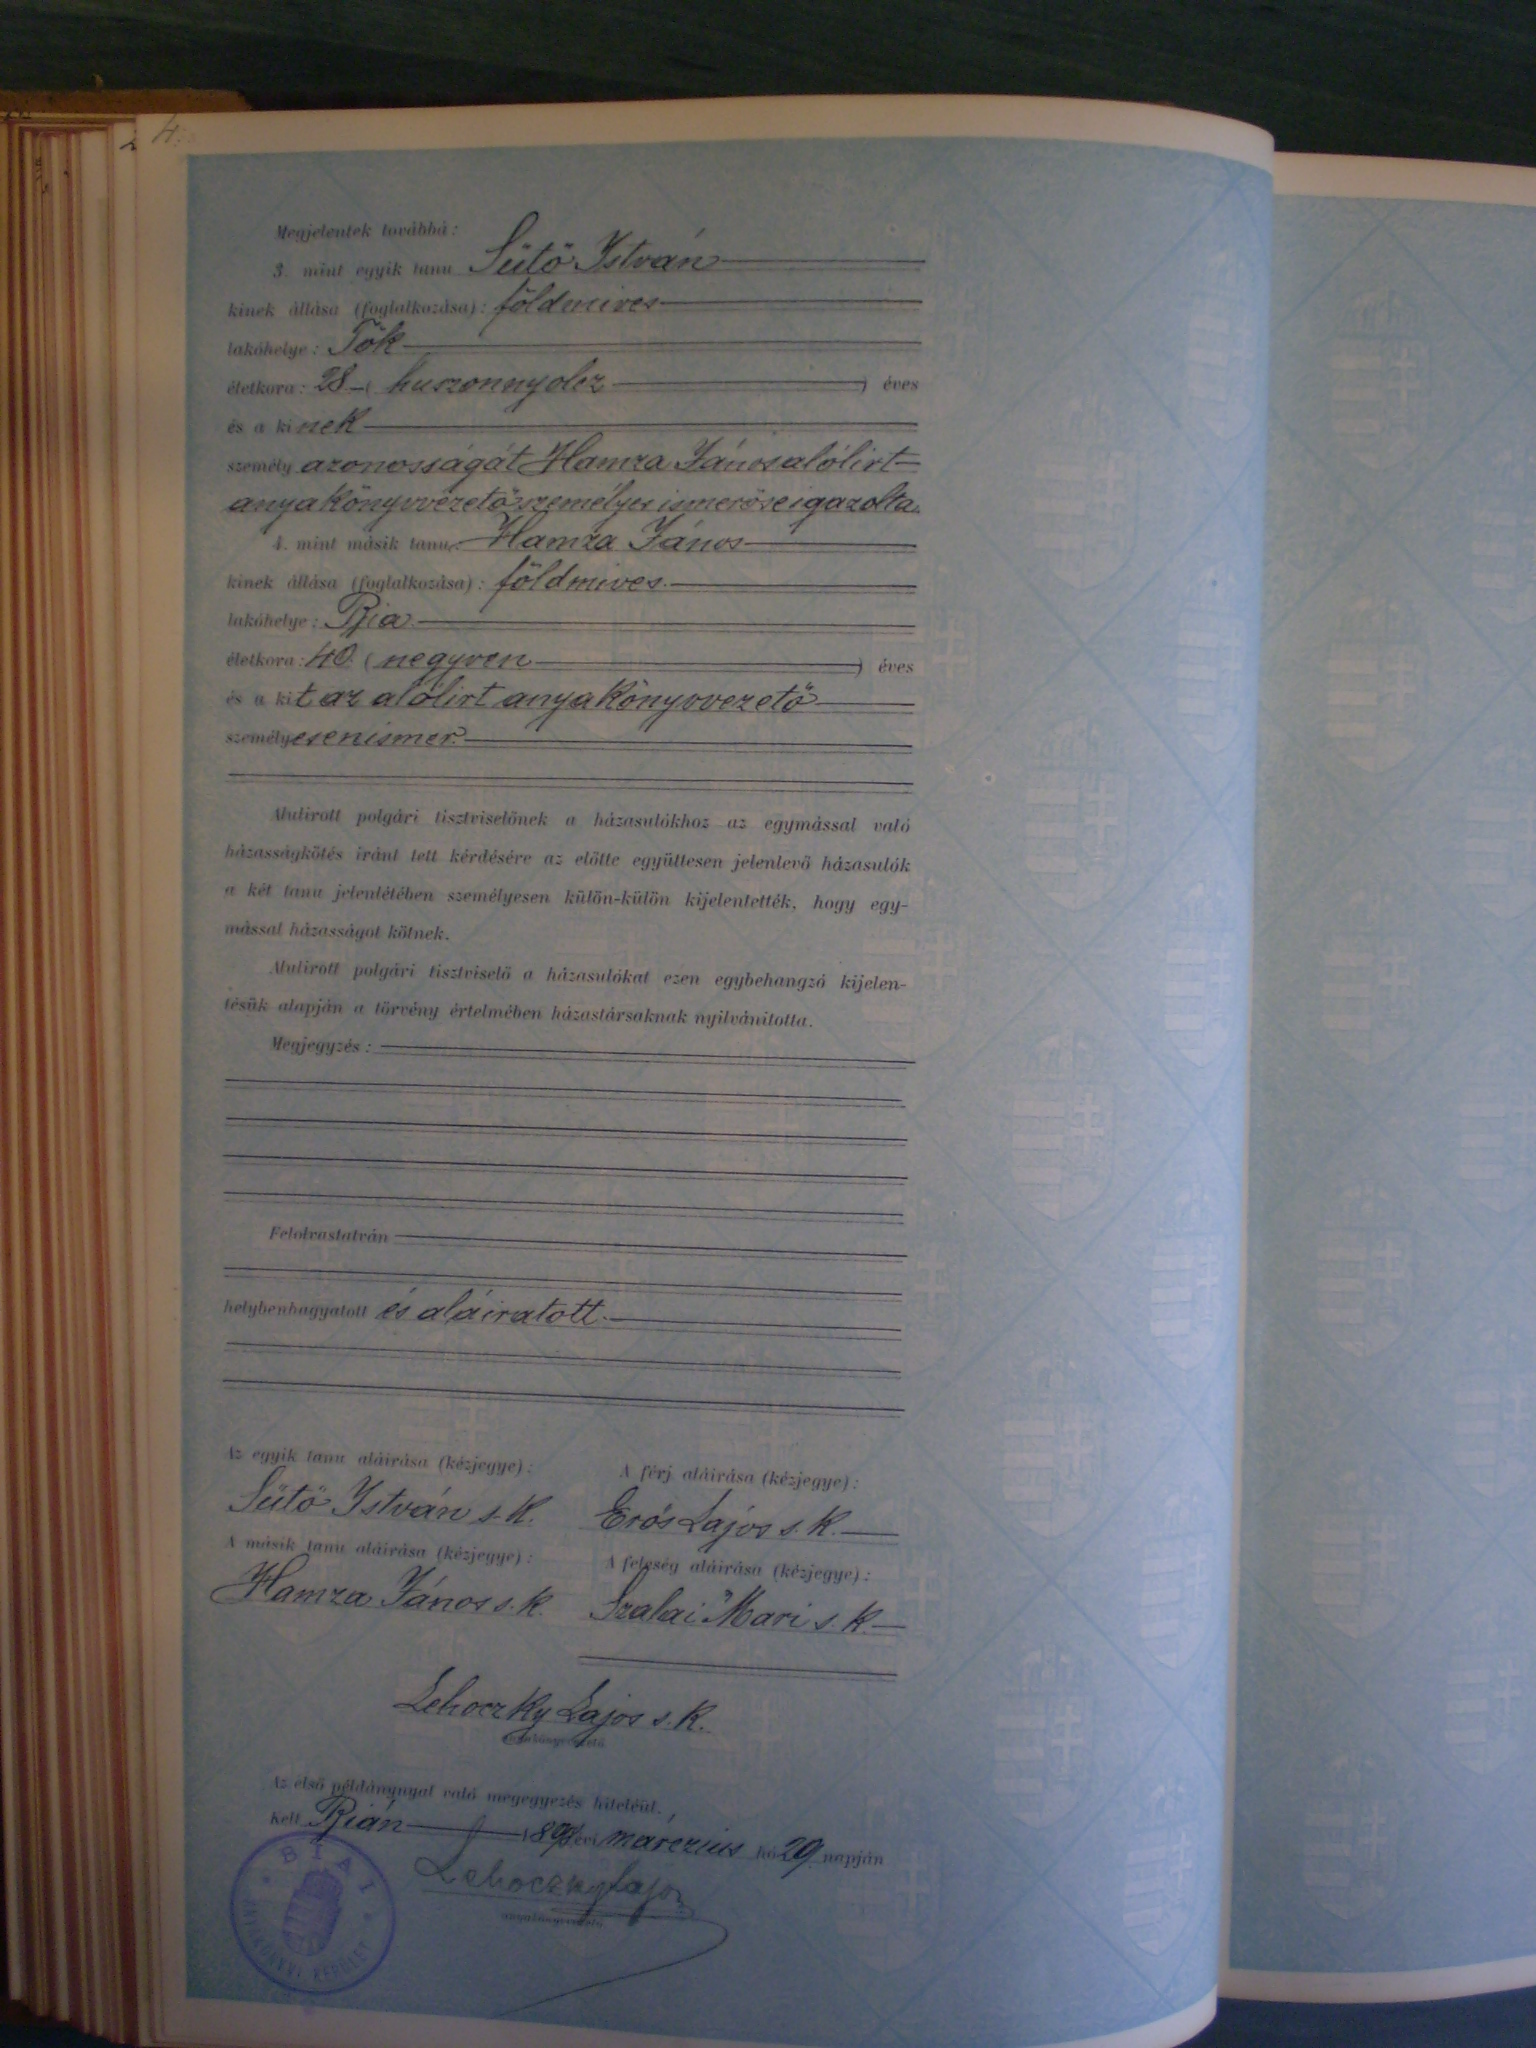 4.
Megjelentek továbbá:
3. mint egyik tanu Sütö István
kinek állása (foglalkozása): földmives
lakóhelye: Tök
életkora: 28 ( huszonnyolcz ) éves
és a kinek
személyazonosságát Hamza János alólirt
anyakönyvvezetö személyes ismeröse igazolta.
4. mint másik tanu: Hamza János
kinek állása (foglalkozása): földmives.
lakóhelye: Bia.
életkora: 40. ( negyven ) éves
és a kit az alólirt anyakönyvvezetö
személyesen ismer.
Alulirott polgári tisztviselőnek a házasulókhoz az egymással való
házasságkötés iránt tett kérdésére az előtte együttesen jelenlevő házasulók
a két tanu jelenlétében személyesen külön-külön kijelentették, hogy egy-
mással házasságot kötnek.
Alulirott polgári tisztviselő a házasulókat ezen egybehangzó kijelen-
tésük alapján a törvény értelmében házastársaknak nyilvánitotta.
Megjegyzés:
Felolvastatván
helybenhagyatott és aláiratott.
Az egyik tanu aláirása (kézjegye):
Sütö István s. k.
A férj aláirása (kézjegye):
Erős Lajos s. k.
A másik tanu aláirása (kézjegye):
Hamza János s. k.
A feleség aláirása (kézjegye):
Szalai Mari s. k.
Lehoczky Lajos s. k.
anyakönyvvezető
Az első példánynyal való megegyezés hiteléül.
Kelt Bián évi márczius hó 29 napján
Lehoczky Lajos
anyakönyvvezető
BIAI
ANYAKÖNYVI KERÜLET